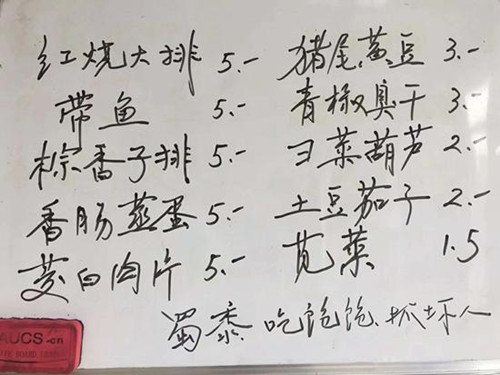 红烧大排 5.-
带鱼 5.-
棕香子排 5.-
香肠蒸蛋 5.-
茭白肉片 5.-
猪尾黄豆 3.-
青椒臭干 3.-
彐菜葫芦 2.-
土豆茄子 2.-
苋菜 1.5
蜀黍 吃饱饱、抓坏人
AUCS.cn